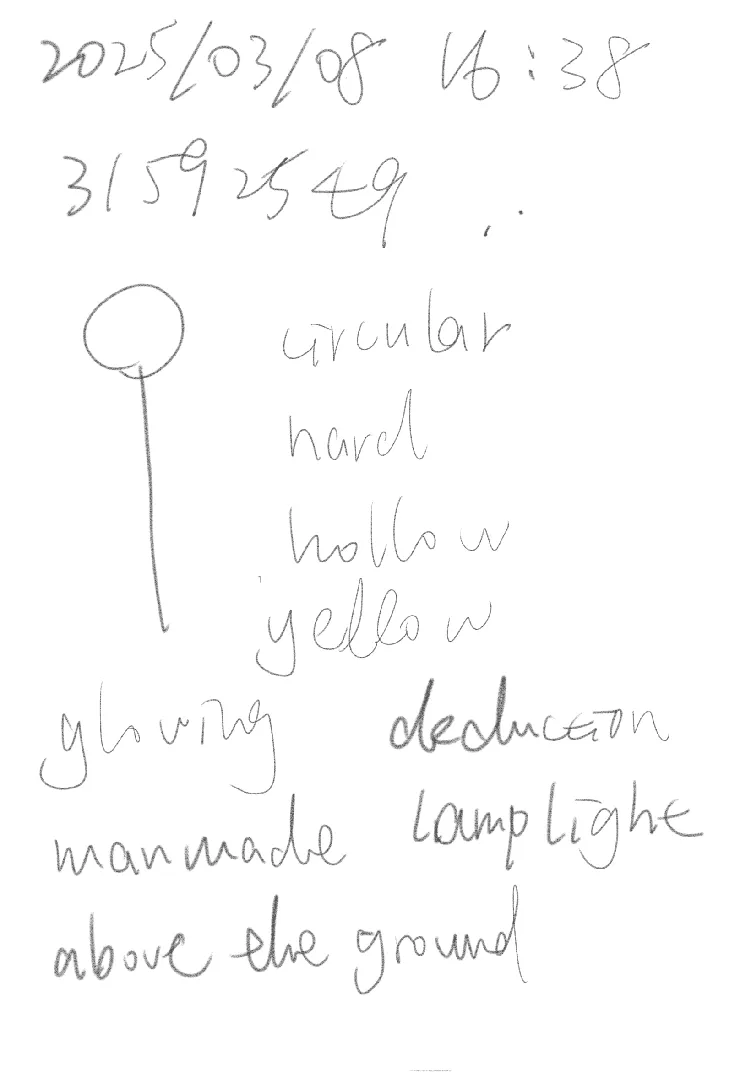 2025/03/08 16:38
31592549
circular
hard
hollow
yellow
glowing deduction
manmade lamplight
above the ground